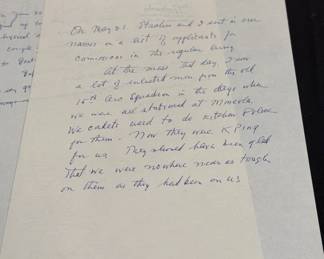 On May 21 Stralem and I sent in our
names on a list of applicants for
commission in the regular army
At the mess that day, I saw
a lot of enlisted men from the old
16th Aero Squadron in the days when
we were all stationed at Mineola.
We cadets used to do Kitchen Police
for them. Now they were K Ping
for us. They should have been glad
that we were nowhere near as tough
on them as they had been on us